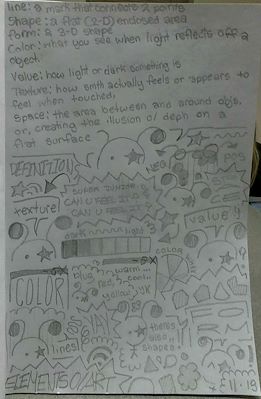 line: a mark that connects 2 points
Shape: a flat (2-D) enclosed area
Form: a 3-D shape
Color: what you see when light reflects off a
object.
Value: how light or dark something is
Texture: how smth actually feels or appears to
feel when touched,
Space: the area between and around objs.
or, creating the illusion of deph on a
flat surface
DEFINITION
NEG
POS
SUPER JUNIOR D
CAN U FEEL IT?
CAN U FEEL IT?
texture!
value!
dark
light
COLOR
COLOR
blue
red,
yellow
warm...
cool
lines!
theres
also
shapes!
FORM
ELEMENTS O/ ART